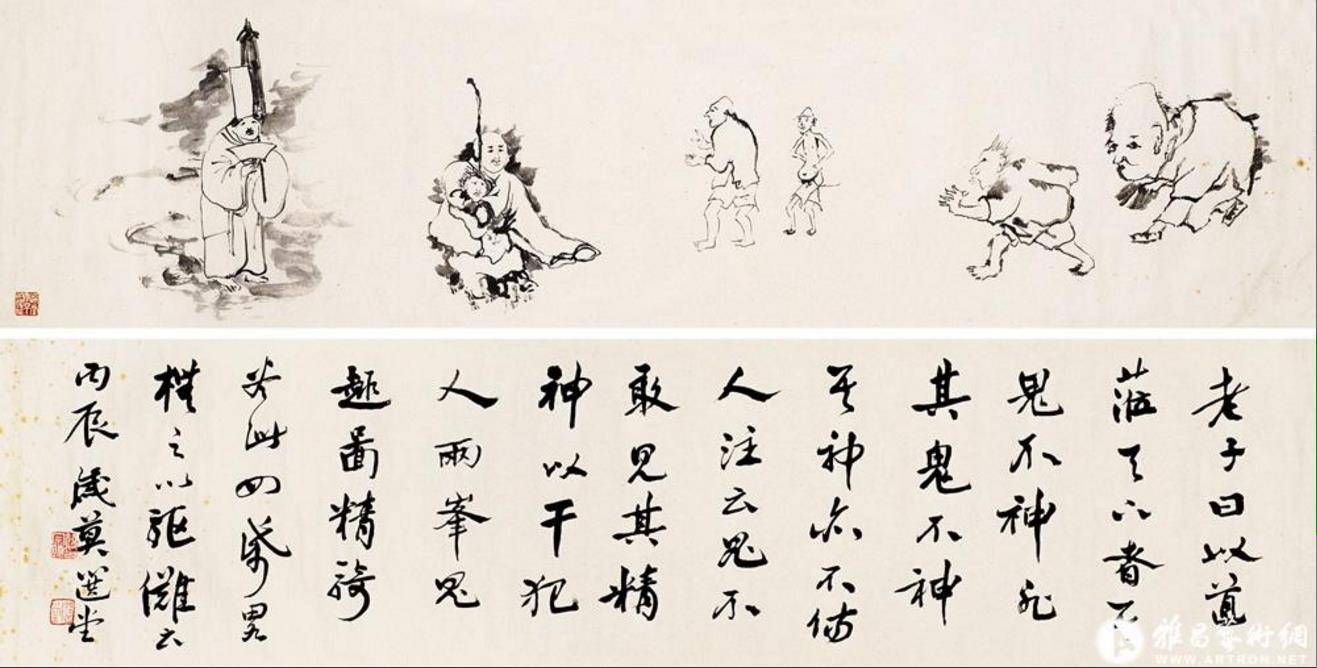 老子曰以道
蒞天下者
鬼不神非
其鬼不神
其神亦不傷
人注云鬼不
敢見其精
神以干犯
人兩峯鬼
趣圖精
此四畧
橅之以驅儺云
丙辰歲莫選堂
雅昌藝術網
WWW.ARTRON.NET